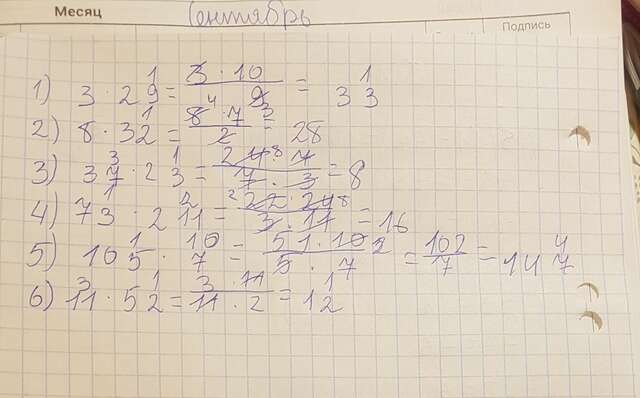 Месяц Сентябрь Подпись
1) 3 · 2 1/9 = 3 · 10/9 3 = 3 1/3
2) 8 · 3 1/2 = 8 4 · 7/2 = 28
3) 3 3/7 · 2 1/3 = 24 8 · 7/7 · 3 = 8
4) 7 1/3 · 2 2/11 = 2 22 · 24 8/3 · 11 = 16
5) 10 1/5 · 10/7 = 51 · 10 2/5 · 7 = 102/7 = 14 4/7
6) 3/11 · 5 1/2 = 3 · 11/11 · 2 = 1 1/2